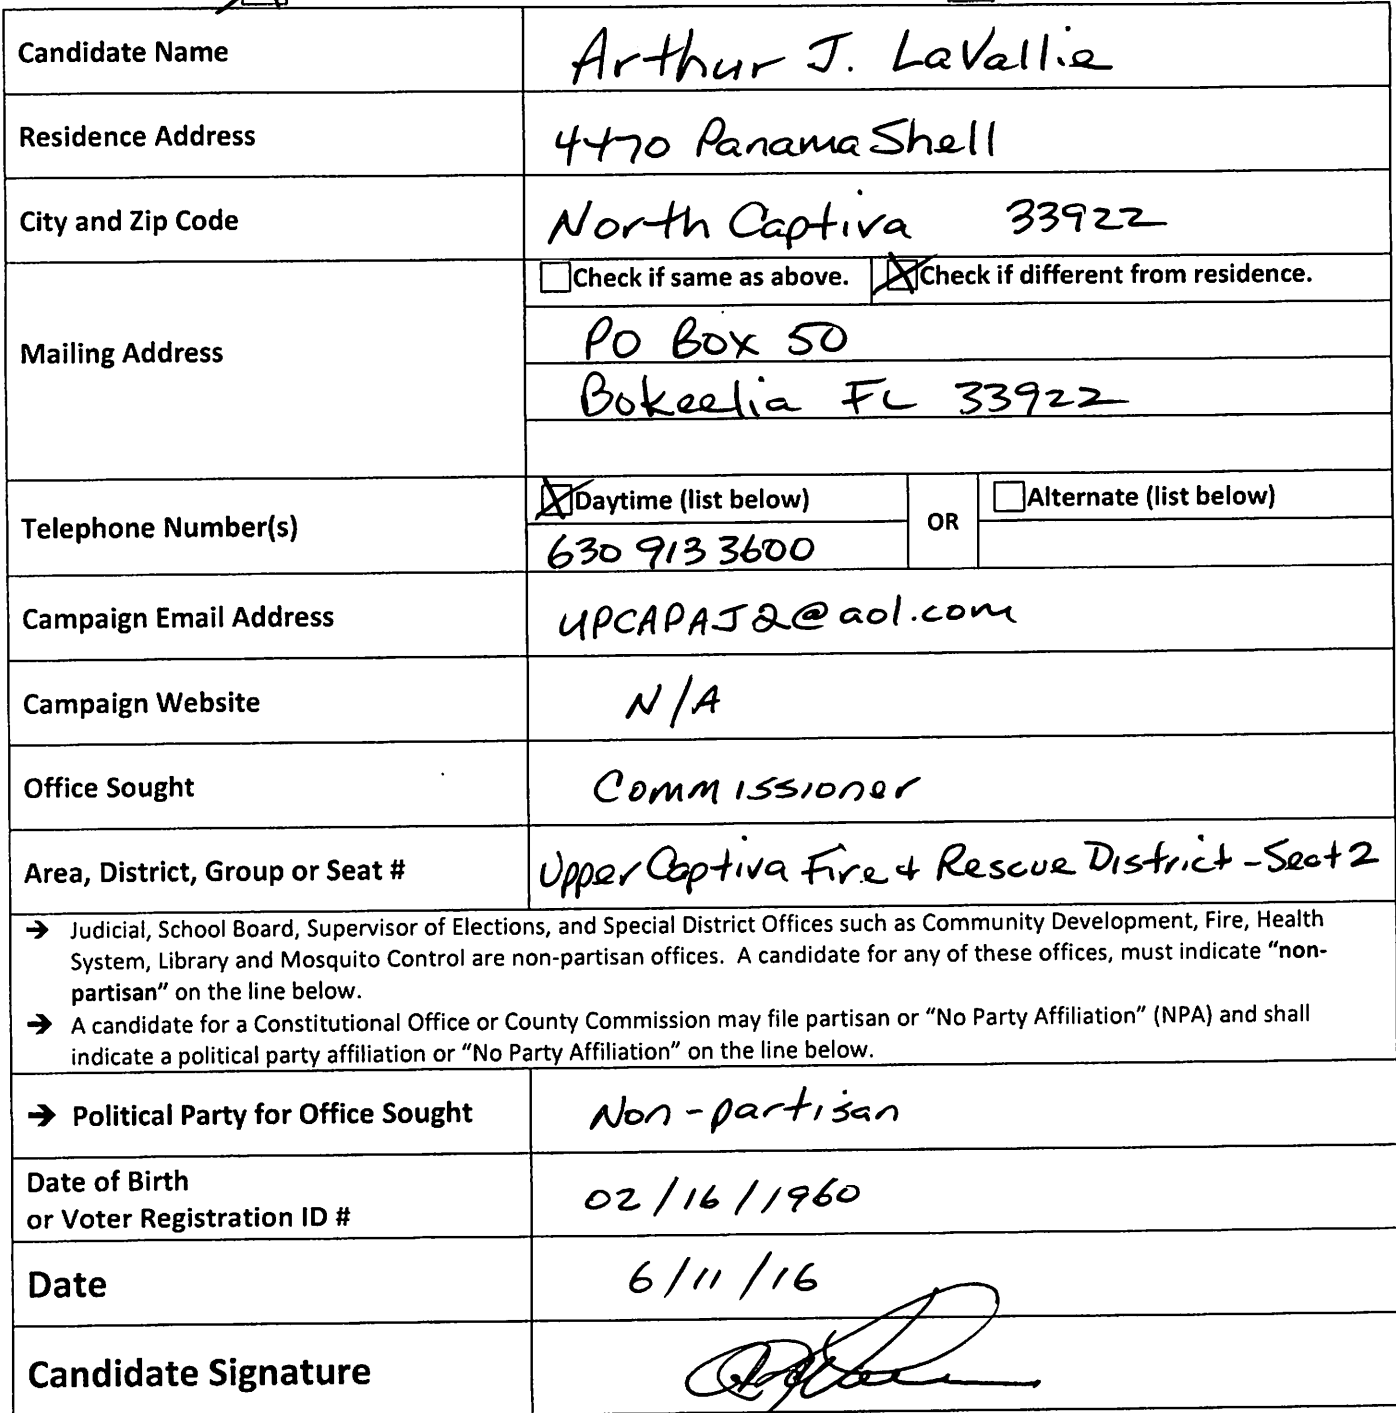 Candidate Name Arthur J. LaVallie
Residence Address 4470 Panama Shell
City and Zip Code North Captiva 33922
Check if same as above. Check if different from residence.
Mailing Address
PO Box 50
Bokeelia FL 33922
Telephone Number(s)
Daytime (list below) OR Alternate (list below)
630 913 3600
Campaign Email Address UPCAPAJ2@aol.com
Campaign Website N/A
Office Sought Commissioner
Area, District, Group or Seat # Upper Captiva Fire & Rescue District - Seat 2
→ Judicial, School Board, Supervisor of Elections, and Special District Offices such as Community Development, Fire, Health
System, Library and Mosquito Control are non-partisan offices. A candidate for any of these offices, must indicate "non-
partisan" on the line below.
→ A candidate for a Constitutional Office or County Commission may file partisan or "No Party Affiliation" (NPA) and shall
indicate a political party affiliation or "No Party Affiliation" on the line below.
→ Political Party for Office Sought Non-partisan
Date of Birth
or Voter Registration ID # 02/16/1960
Date 6/11/16
Candidate Signature